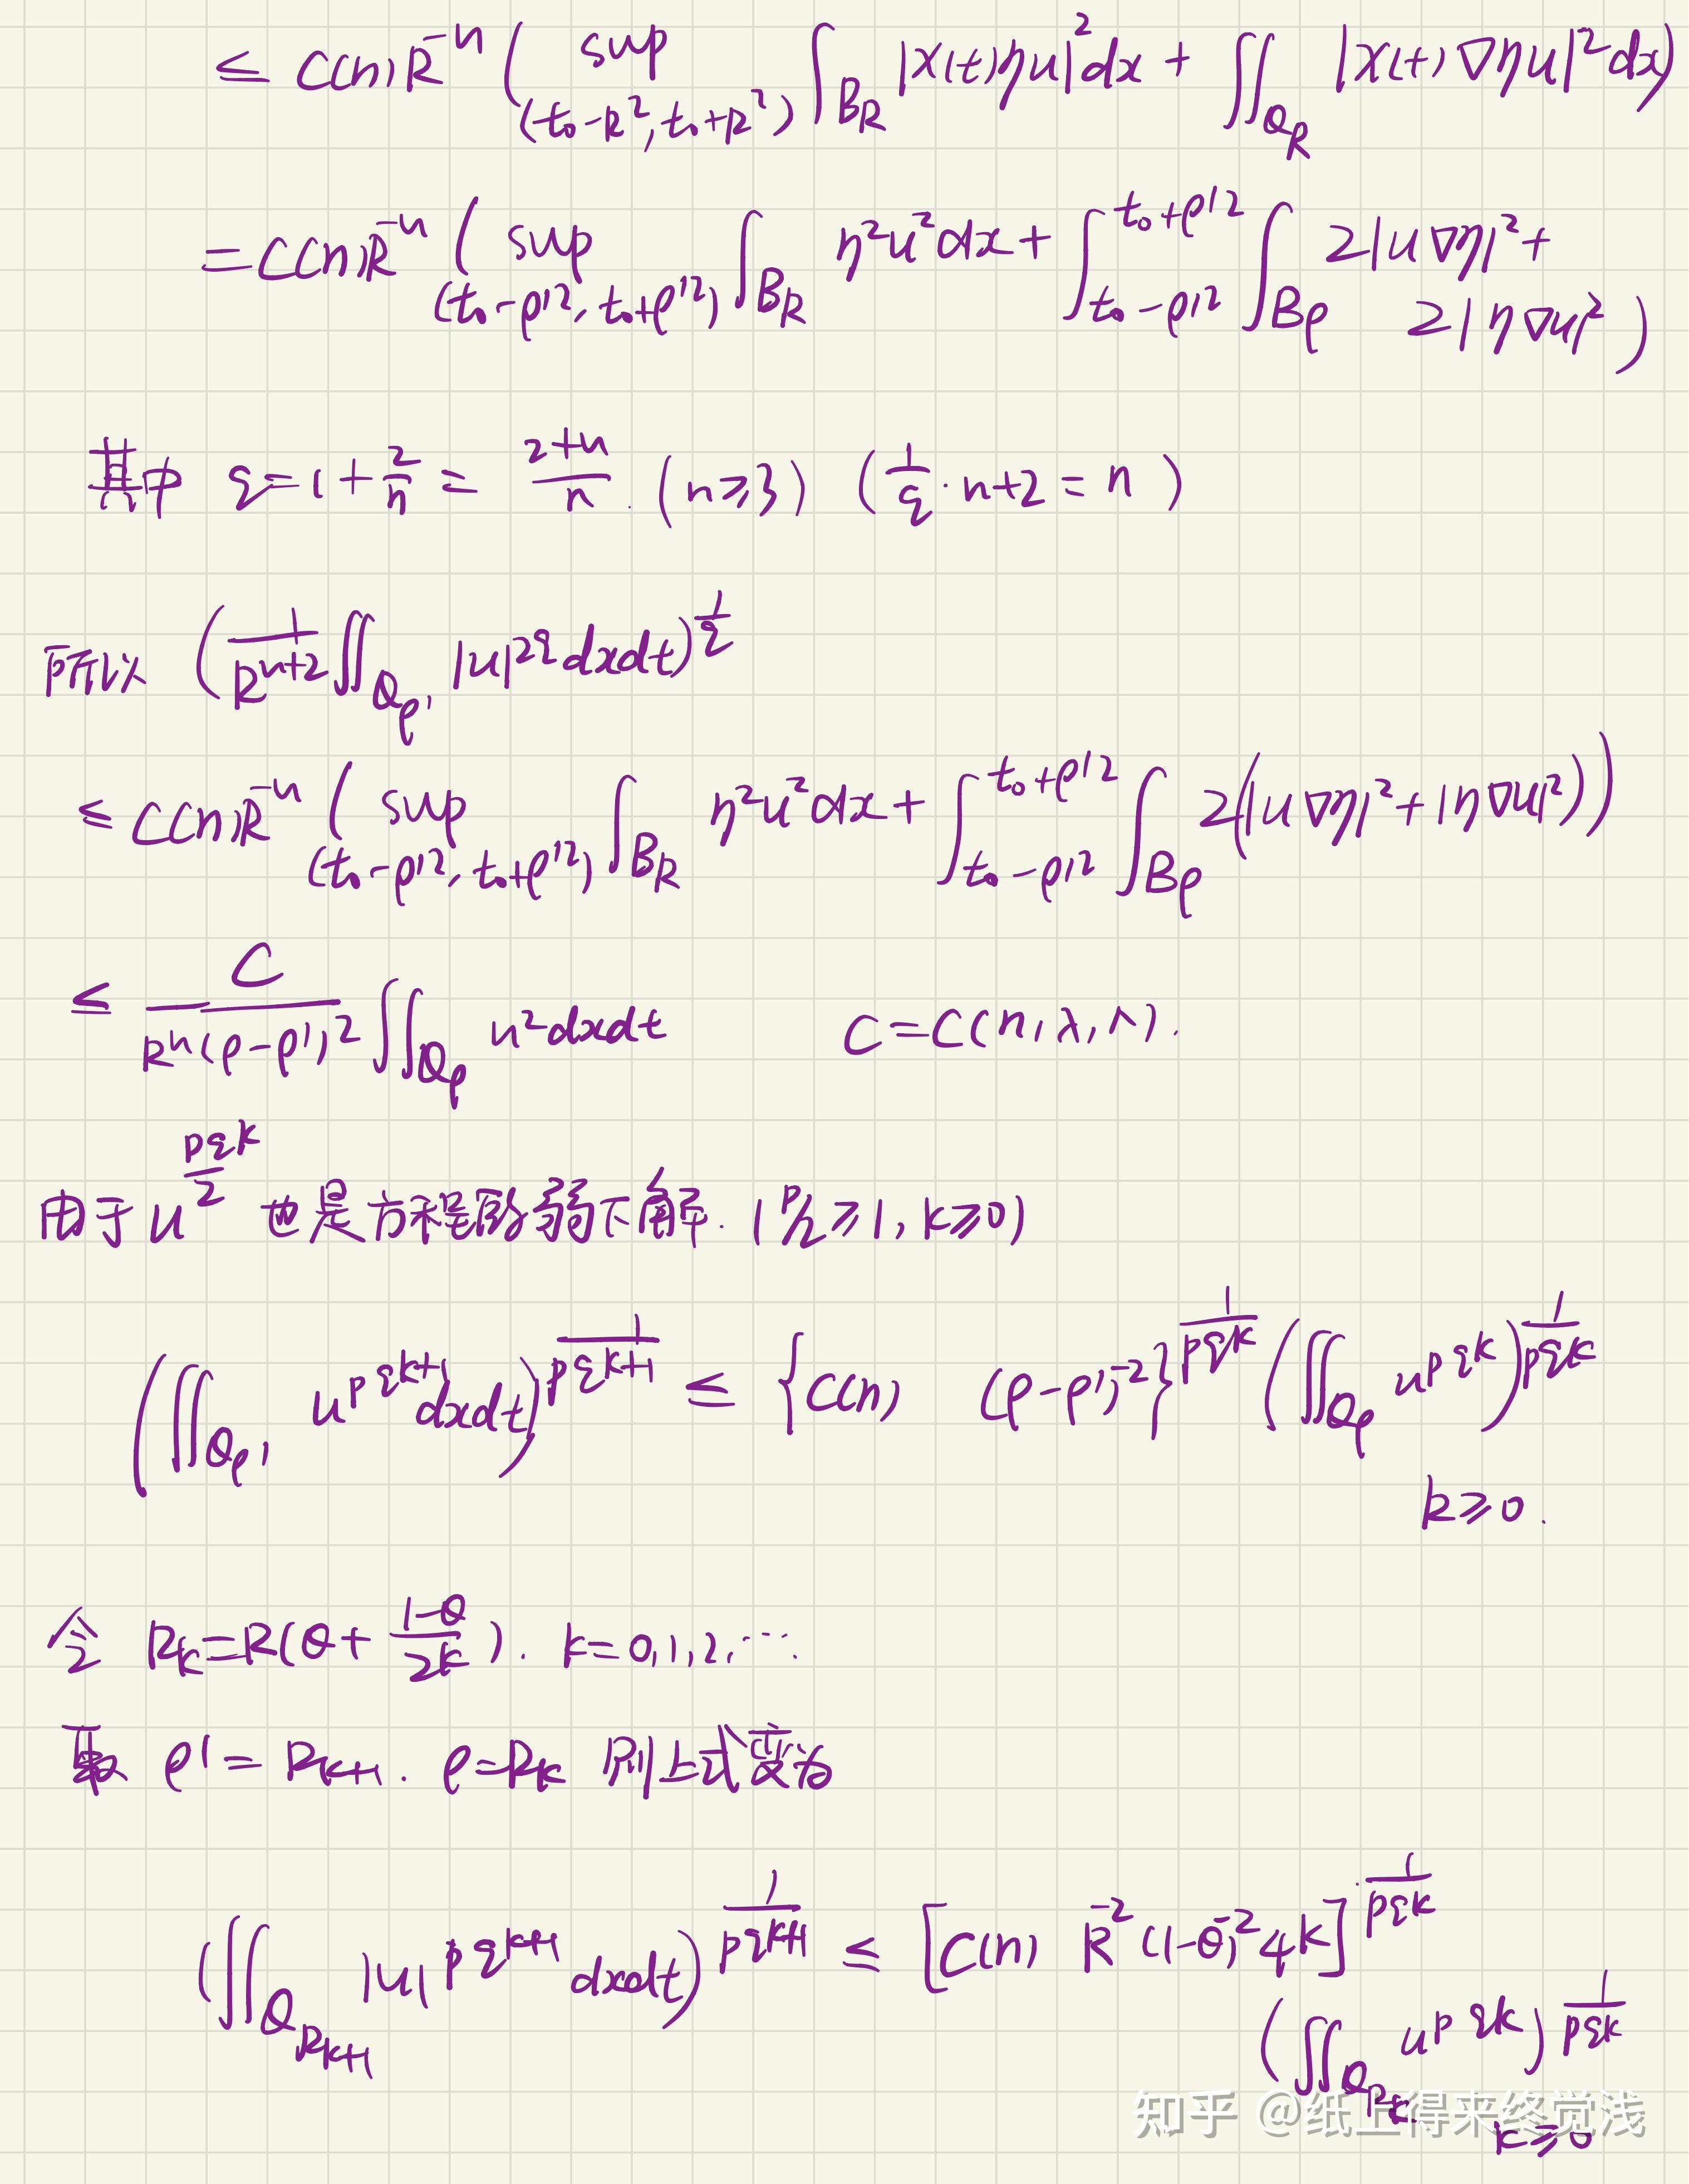 ≤ C(n)R^{-n} ( sup_{(t₀-R², t₀+R²)} ∫_{B_R} |χ(t)ηu|² dx + ∬_{Q_R} |χ(t)∇ηu|² dx)
= C(n)R^{-n} ( sup_{(t₀-ρ'², t₀+ρ'²)} ∫_{B_R} η²u²dx + ∫_{t₀-ρ'²}^{t₀+ρ'²} ∫_{B_ρ} 2|u∇η|² +
2|η∇u|² )
其中 q = 1 + 2/n = (2+n)/n. (n≥3) (1/q · n+2 = n)
所以 ( 1/R^{n+2} ∬_{Q_ρ'} |u|^{2q} dxdt )^{1/q}
≤ C(n)R^{-n} ( sup_{(t₀-ρ'², t₀+ρ'²)} ∫_{B_R} η²u²dx + ∫_{t₀-ρ'²}^{t₀+ρ'²} ∫_{B_ρ} 2(|u∇η|² + |η∇u|²))
≤ C/(R^n(ρ-ρ')²) ∬_{Q_ρ} u²dxdt C = C(n, λ, Λ).
由于 u^{pq^k/2} 也是方程的弱下解. (p/2 ≥ 1, k≥0)
( ∬_{Q_ρ'} u^{pq^{k+1}} dxdt )^{1/(pq^{k+1})} ≤ { C(n) (ρ-ρ')^{-2} }^{1/(pq^k)} ( ∬_{Q_ρ} u^{pq^k} )^{1/(pq^k)}
k≥0.
令 R_k = R(θ + (1-θ)/2^k). k=0,1,2,⋯
取 ρ' = R_{k+1}. ρ = R_k 则上式变为
( ∬_{Q_{R_{k+1}}} |u|^{pq^{k+1}} dxdt )^{1/(pq^{k+1})} ≤ [ C(n) R^{-2} (1-θ)^{-2} 4^k ]^{1/(pq^k)}
( ∬_{Q_{R_k}} u^{pq^k} )^{1/(pq^k)}
k≥0
知乎 @纸上得来终觉浅